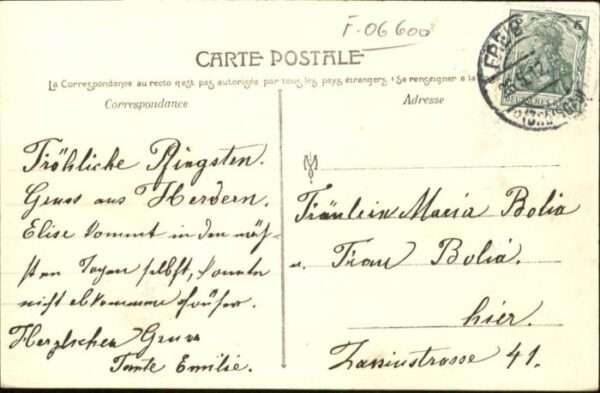 F-06600
CARTE POSTALE
La Correspondance au recto n'est pas autorisée par tous les pays étrangers (Se renseigner à la
Correspondance
Adresse
Fröhliche Pfingsten.
Gruss aus Herdern.
Elise kommt in den näch-
sten Tagen selbst, konnte
nicht abkommen früher.
Herzlichen Gruss
Tante Emilie.
Fräulein Maria Bolia
u. Frau Bolia.
hier.
Zasiusstrasse 41.
FREIB
DEUTSCHES REICH